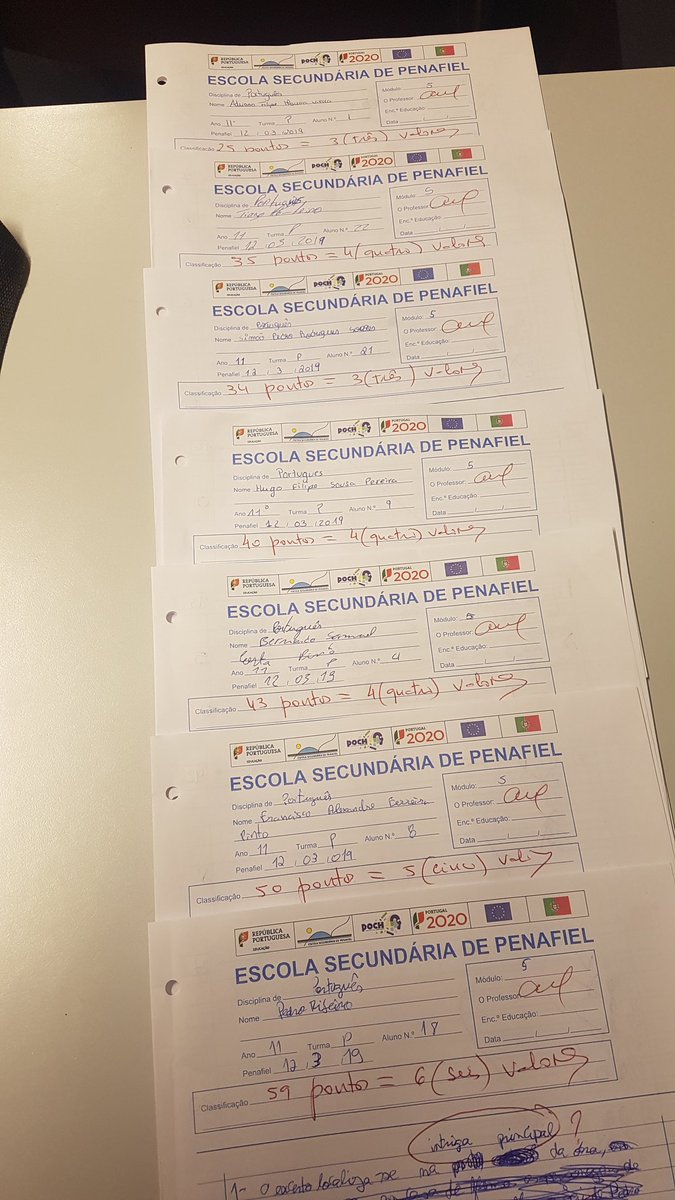 REPÚBLICA PORTUGUESA
EDUCAÇÃO
POCH
PORTUGAL 2020
ESCOLA SECUNDÁRIA DE PENAFIEL
Disciplina de Português
Nome Filipe
Ano 11º Turma P Aluno N.º 1
Penafiel 12, 03, 2019
Módulo: 5
O Professor:
Enc.º Educação:
Data / /
Classificação 25 pontos = 3 (três) valores
REPÚBLICA PORTUGUESA
EDUCAÇÃO
POCH
PORTUGAL 2020
ESCOLA SECUNDÁRIA DE PENAFIEL
Disciplina de Português
Nome
Ano 11 Turma P Aluno N.º 22
Penafiel 12, 03, 2019
Módulo: 5
O Professor:
Enc.º Educação:
Data / /
Classificação 35 pontos = 4 (quatro) valores
REPÚBLICA PORTUGUESA
EDUCAÇÃO
POCH
PORTUGAL 2020
ESCOLA SECUNDÁRIA DE PENAFIEL
Disciplina de Português
Nome Simão Pedro Rodrigues
Ano 11 Turma P Aluno N.º 21
Penafiel 12, 3, 2019
Módulo: 5
O Professor:
Enc.º Educação:
Data / /
Classificação 34 pontos = 3 (três) valores
REPÚBLICA PORTUGUESA
EDUCAÇÃO
POCH
PORTUGAL 2020
ESCOLA SECUNDÁRIA DE PENAFIEL
Disciplina de Portugues
Nome Hugo Filipe Sousa Pereira
Ano 11º Turma P Aluno N.º 9
Penafiel 12, 03, 2019
Módulo: 5
O Professor:
Enc.º Educação:
Data / /
Classificação 40 pontos = 4 (quatro) valores
REPÚBLICA PORTUGUESA
EDUCAÇÃO
POCH
PORTUGAL 2020
ESCOLA SECUNDÁRIA DE PENAFIEL
Disciplina de Português
Nome Bernardo Samuel
Costa
Ano 11 Turma P Aluno N.º 4
Penafiel 12, 03, 19
Módulo: 5
O Professor:
Enc.º Educação:
Data / /
Classificação 43 pontos = 4 (quatro) valores
REPÚBLICA PORTUGUESA
EDUCAÇÃO
POCH
PORTUGAL 2020
ESCOLA SECUNDÁRIA DE PENAFIEL
Disciplina de Português
Nome Francisco Alexandre Ferreira
Pinto
Ano 11 Turma P Aluno N.º 8
Penafiel 12, 03, 019
Módulo: 5
O Professor:
Enc.º Educação:
Data / /
Classificação 50 pontos = 5 (cinco) valores
REPÚBLICA PORTUGUESA
EDUCAÇÃO
POCH
PORTUGAL 2020
ESCOLA SECUNDÁRIA DE PENAFIEL
Disciplina de Português
Nome Pedro Ribeiro
Ano 11 Turma P Aluno N.º 18
Penafiel 12, 3, 19
Módulo: 5
O Professor:
Enc.º Educação:
Data / /
Classificação 59 pontos = 6 (seis) valores
intriga principal ?
1- O excerto localiza se na da obra,